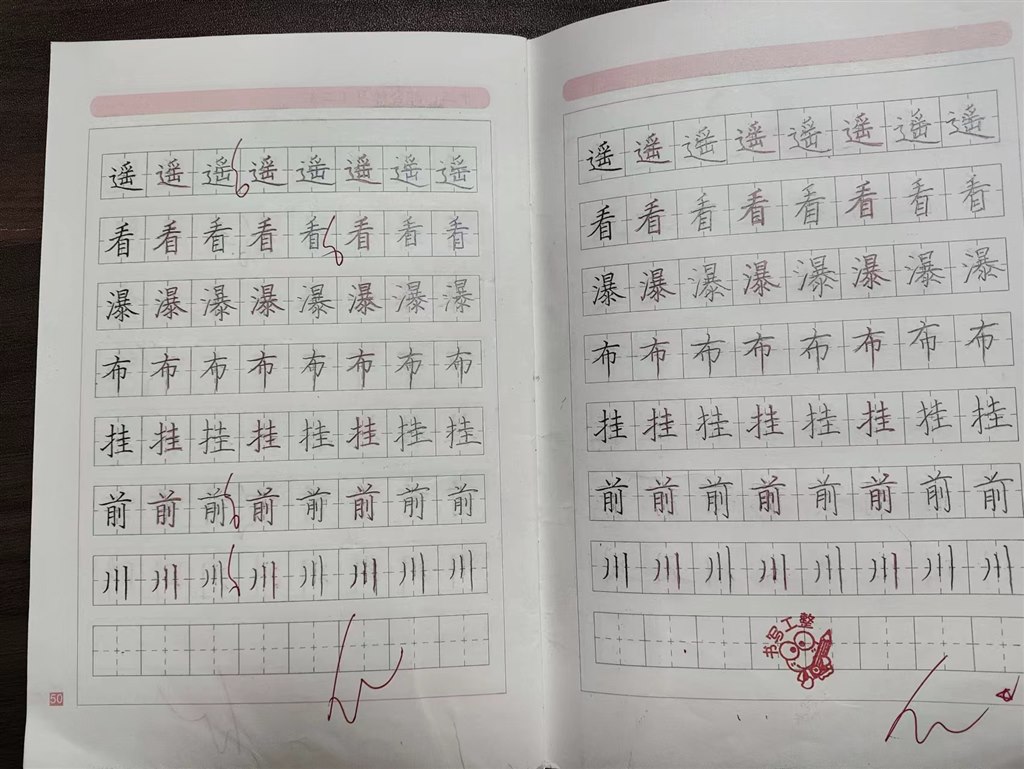 遥遥遥遥遥遥遥遥
看看看看看看看看
瀑瀑瀑瀑瀑瀑瀑瀑
布布布布布布布布
挂挂挂挂挂挂挂挂
前前前前前前前前
川川川川川川川川
50
遥遥遥遥遥遥遥遥
看看看看看看看看
瀑瀑瀑瀑瀑瀑瀑瀑
布布布布布布布布
挂挂挂挂挂挂挂挂
前前前前前前前前
川川川川川川川川
书写工整